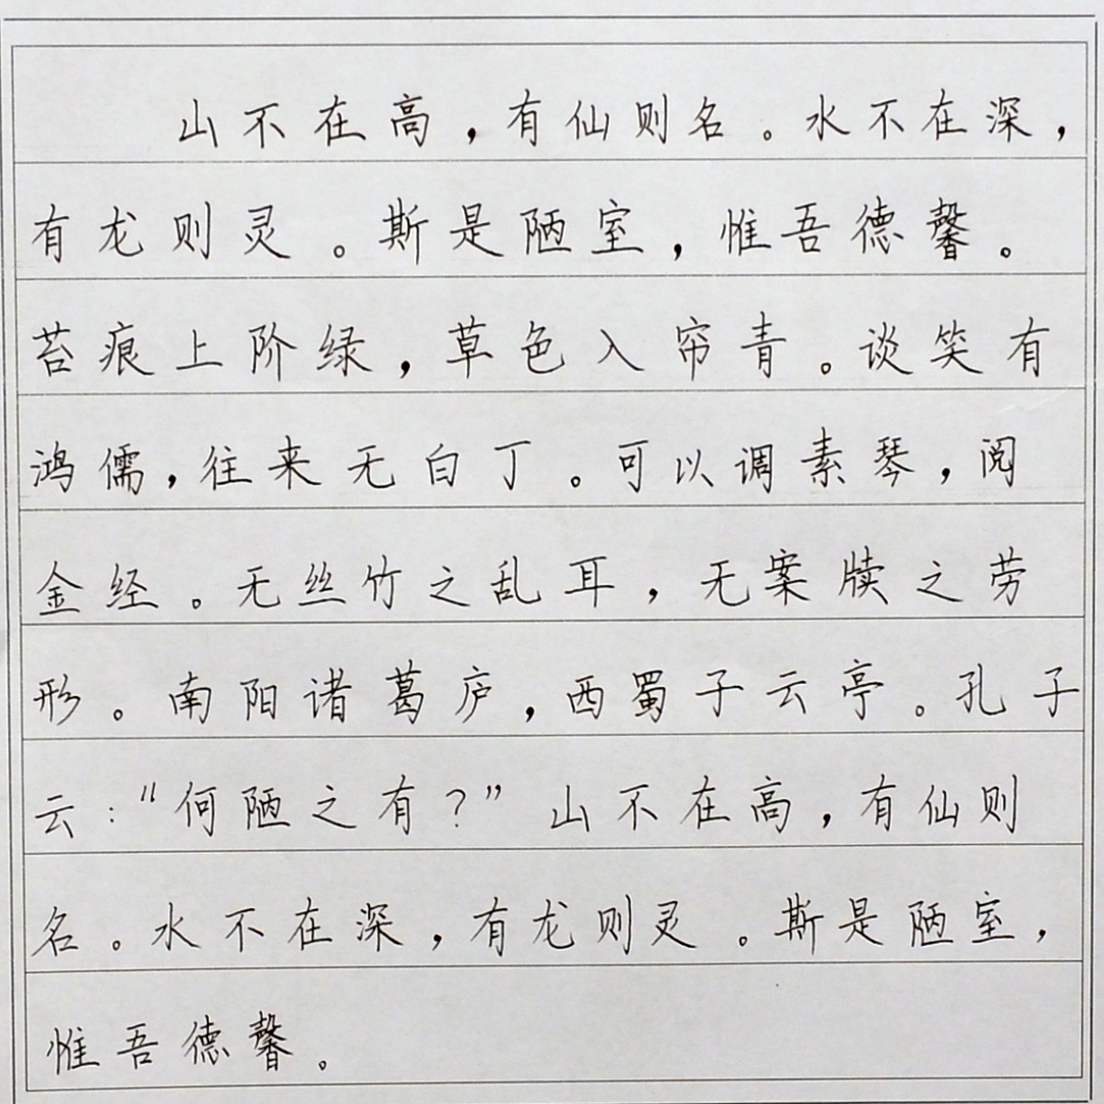 山不在高，有仙则名。水不在深，
有龙则灵。斯是陋室，惟吾德馨。
苔痕上阶绿，草色入帘青。谈笑有
鸿儒，往来无白丁。可以调素琴，阅
金经。无丝竹之乱耳，无案牍之劳
形。南阳诸葛庐，西蜀子云亭。孔子
云：“何陋之有？” 山不在高，有仙则
名。水不在深，有龙则灵。斯是陋室，
惟吾德馨。